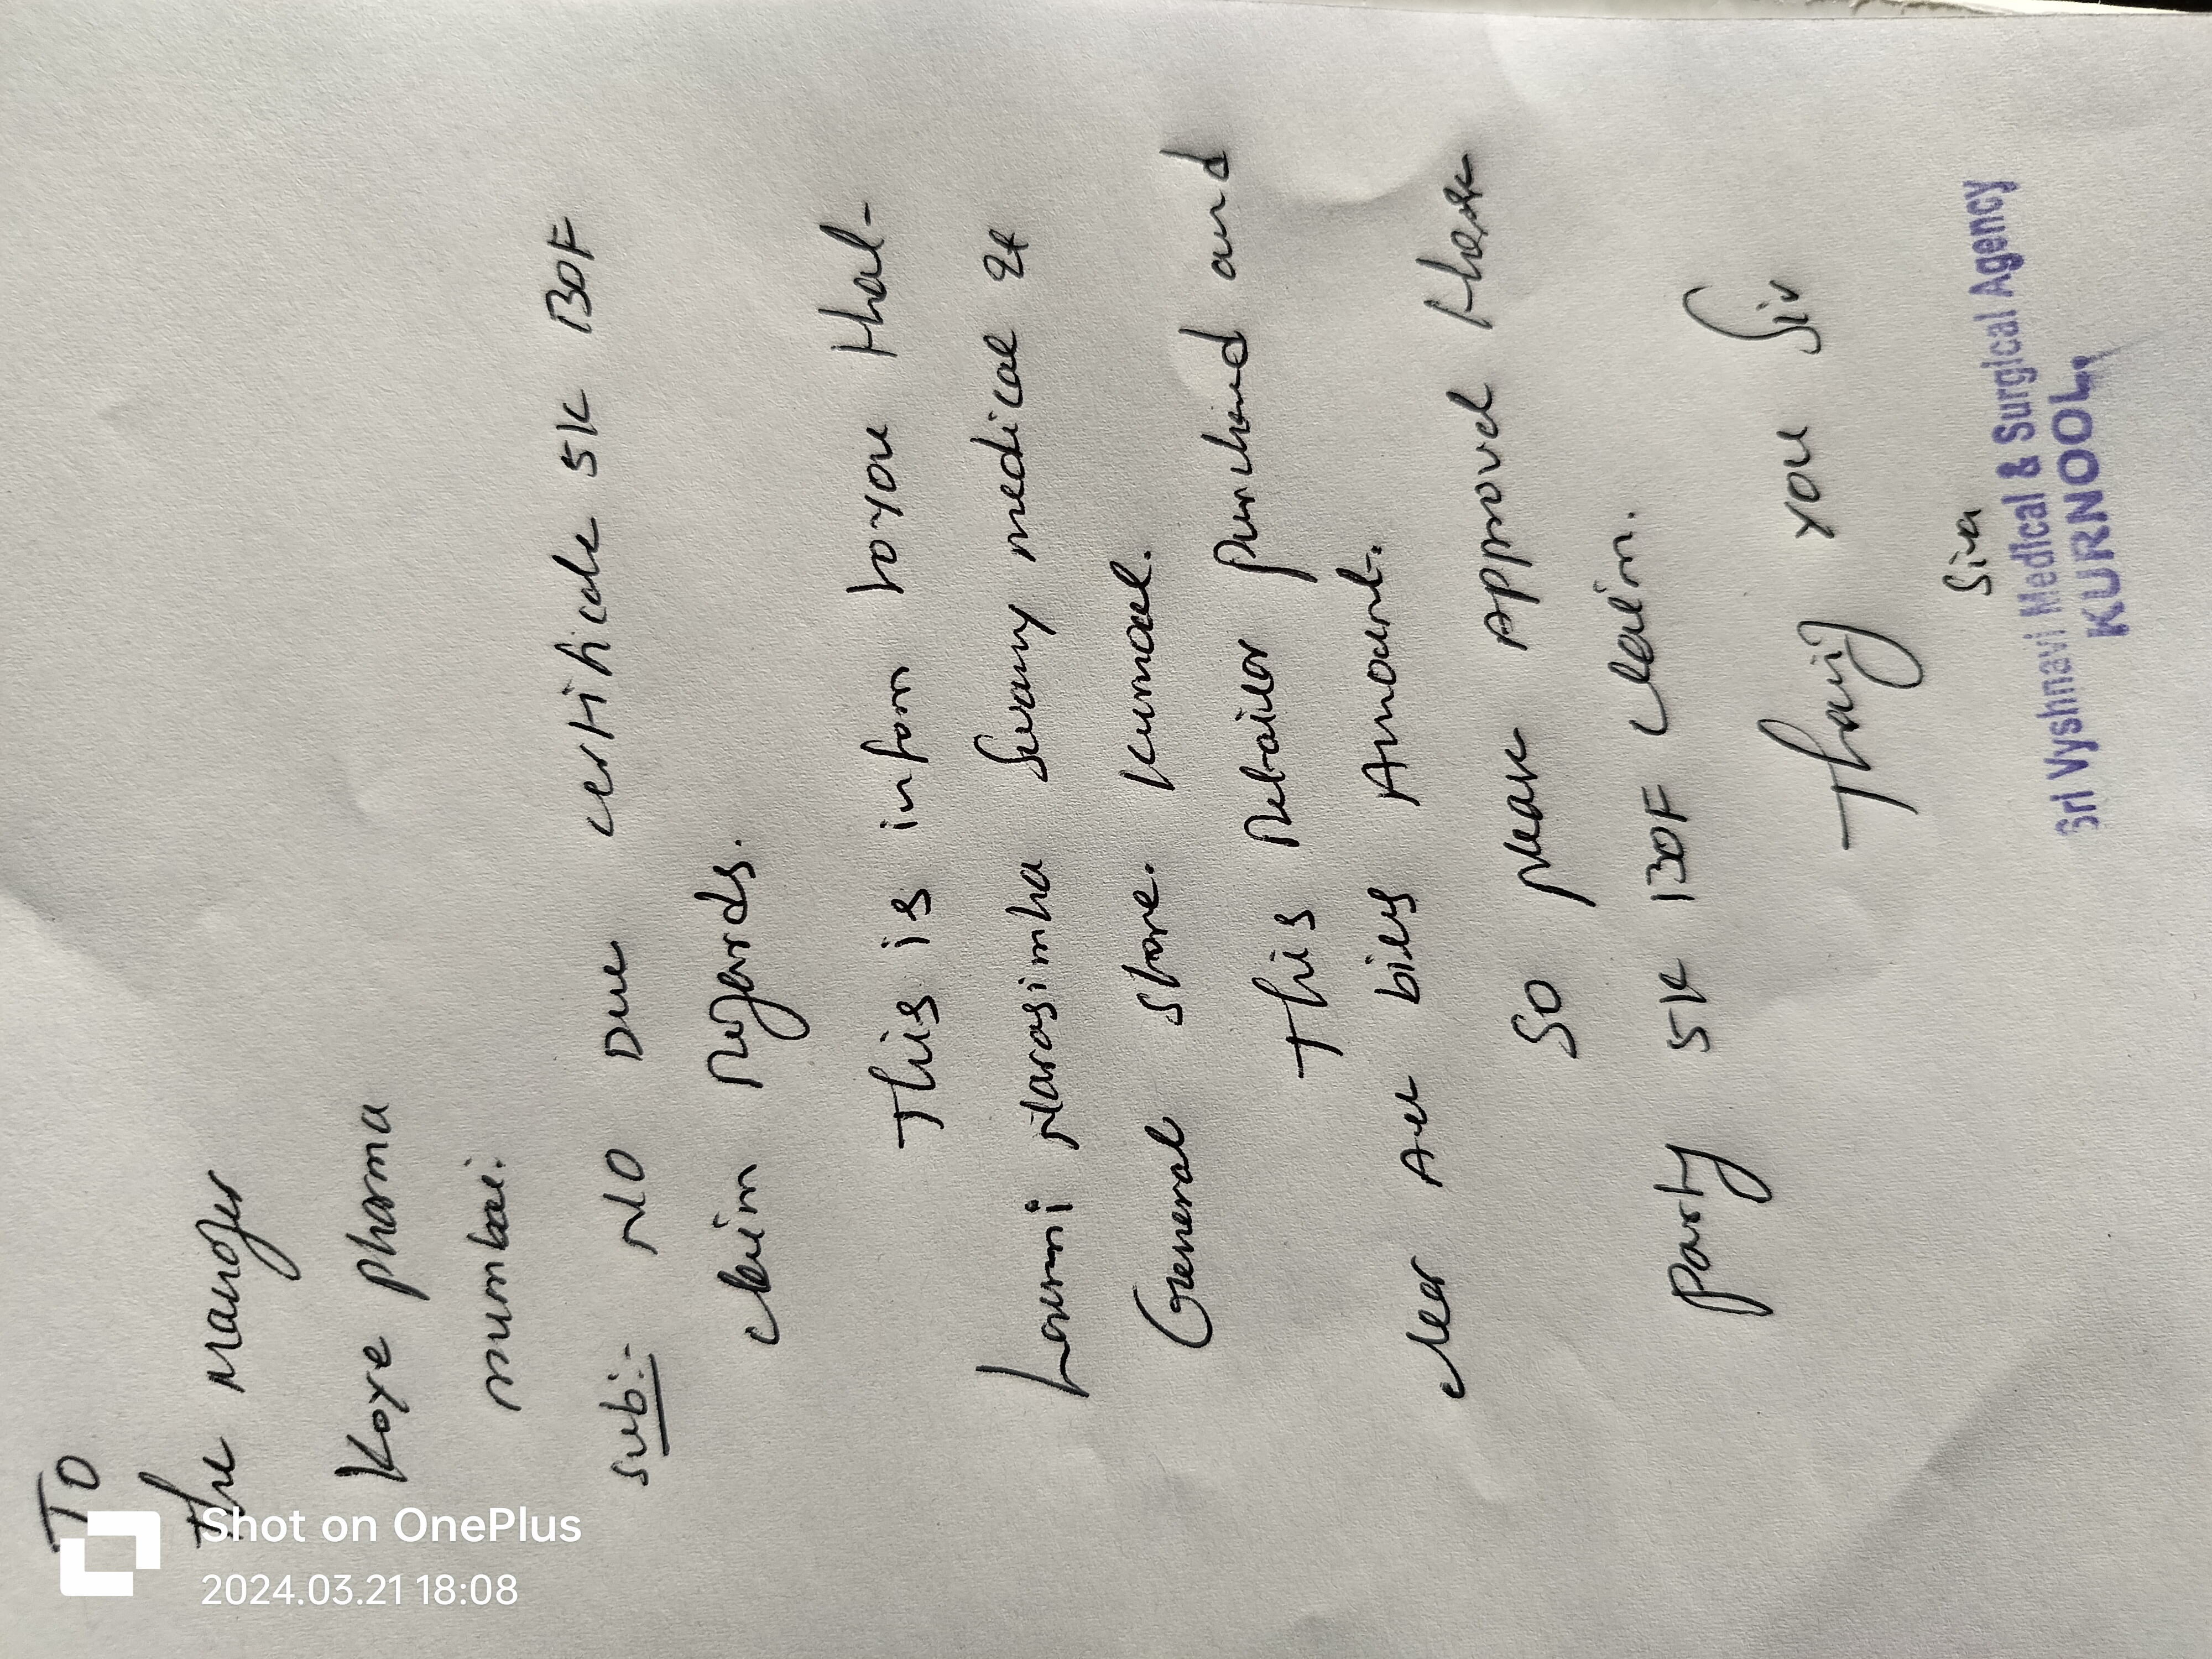 TO
The Manager
Koye pharma
mumbai.
Sub:- NO Due certificate 5K BOF
claim Regards.
This is inform to you that
Laxmi Narasimha Swamy medical &
General store. Kurnool.
This Retailer purchased and
clear All bills Amount.
So please Approved these
party 5K BOF claim.
Thanking you Sir
Siva
Sri Vyshnavi Medical & Surgical Agency
KURNOOL.
Shot on OnePlus
2024.03.21 18:08